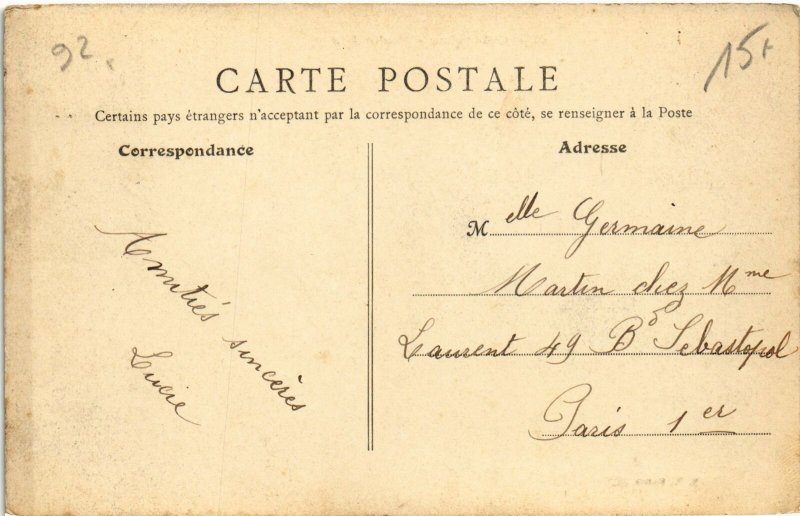 92.
15F
CARTE POSTALE
Certains pays étrangers n'acceptant par la correspondance de ce côté, se renseigner à la Poste
Correspondance
Amitiés sincères
Lucie
Adresse
Melle Germaine
Martin chez Mme
Laurent 49 Bd Sebastopol
Paris 1er